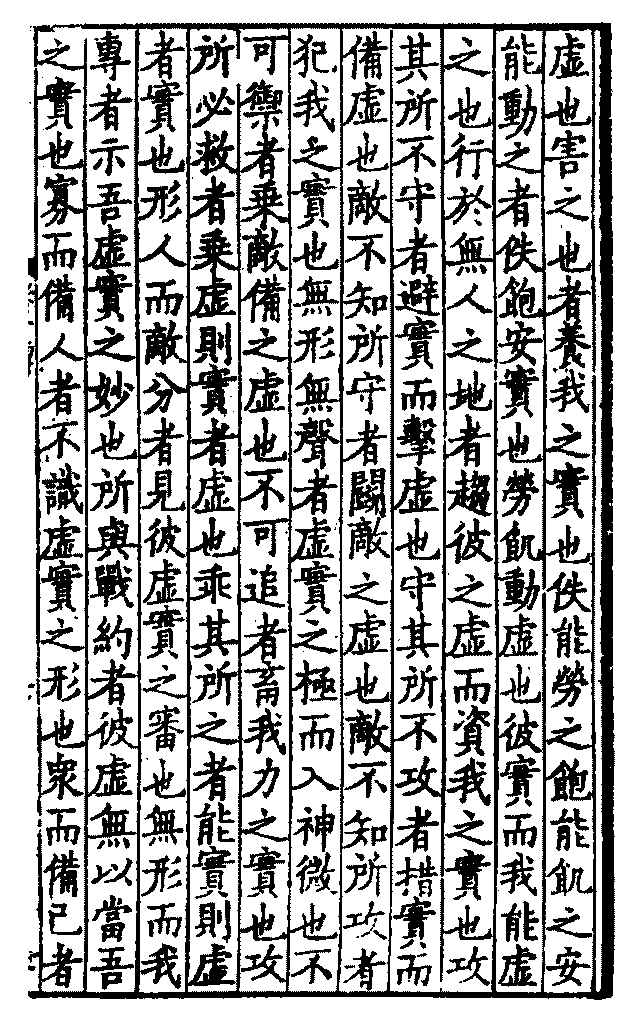 虛也害之也者養我之實也佚能勞之飽能飢之安
能動之者佚飽安實也勞飢動虛也彼實而我能虛
之也行於無人之地者趨彼之虛而資我之實也攻
其所不守者避實而擊虛也守其所不攻者措實而
備虛也敵不知所守者鬭敵之虛也敵不知所攻者
犯我之實也無形無聲者虛實之極而入神微也不
可禦者乘敵備之虛也不可追者畜我力之實也攻
所必救者乘虛則實者虛也乖其所之者能實則虛
者實也形人而敵分者見彼虛實之審也無形而我
專者示吾虛實之妙也所與戰約者彼虛無以當吾
之實也寡而備人者不識虛實之形也衆而備己者